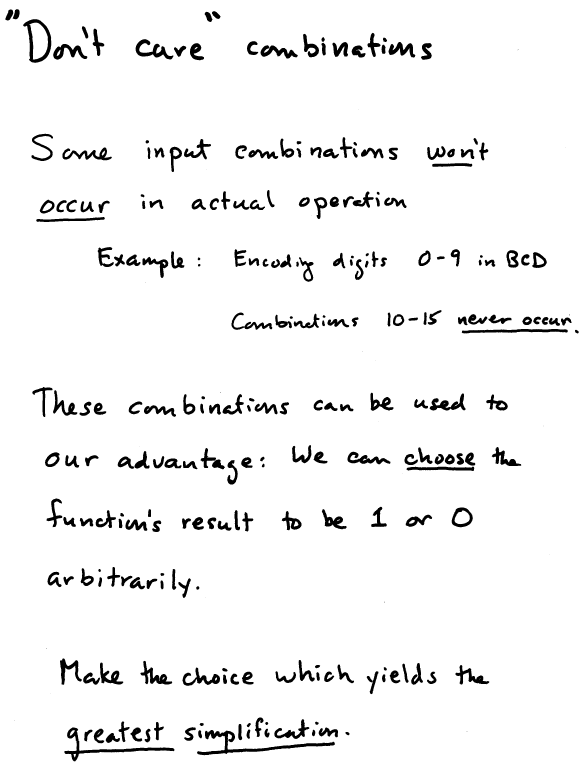 "Don't care" combinations
Some input combinations won't
occur in actual operation
Example: Encoding digits 0-9 in BCD
Combinations 10-15 never occur.
These combinations can be used to
our advantage: We can choose the
function's result to be 1 or 0
arbitrarily.
Make the choice which yields the
greatest simplification.